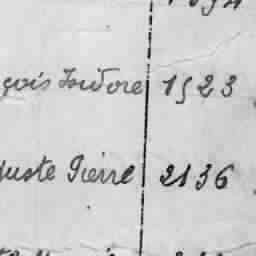 çois Isidore 1523
guste Pierre 2136